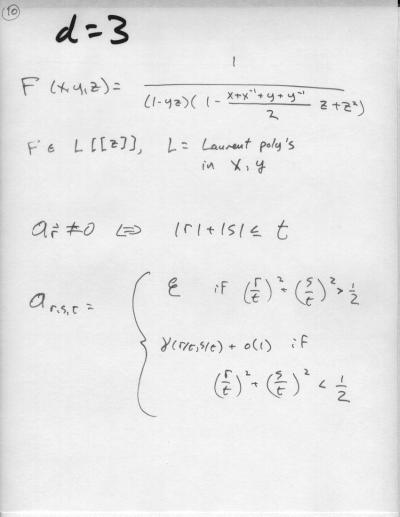 10
d=3
F(x,y,z) = 1 / ((1-yz)(1 - (x+x⁻¹+y+y⁻¹)/2 z+z²))
F ∈ L[[z]], L = Laurent poly's
in x, y
a_r⃗ ≠ 0 ⟺ |r|+|s| ≤ t
a_r,s,t = { ε if (r/t)² + (s/t)² > 1/2
γ(r/t, s/t) + o(1) if
(r/t)² + (s/t)² < 1/2